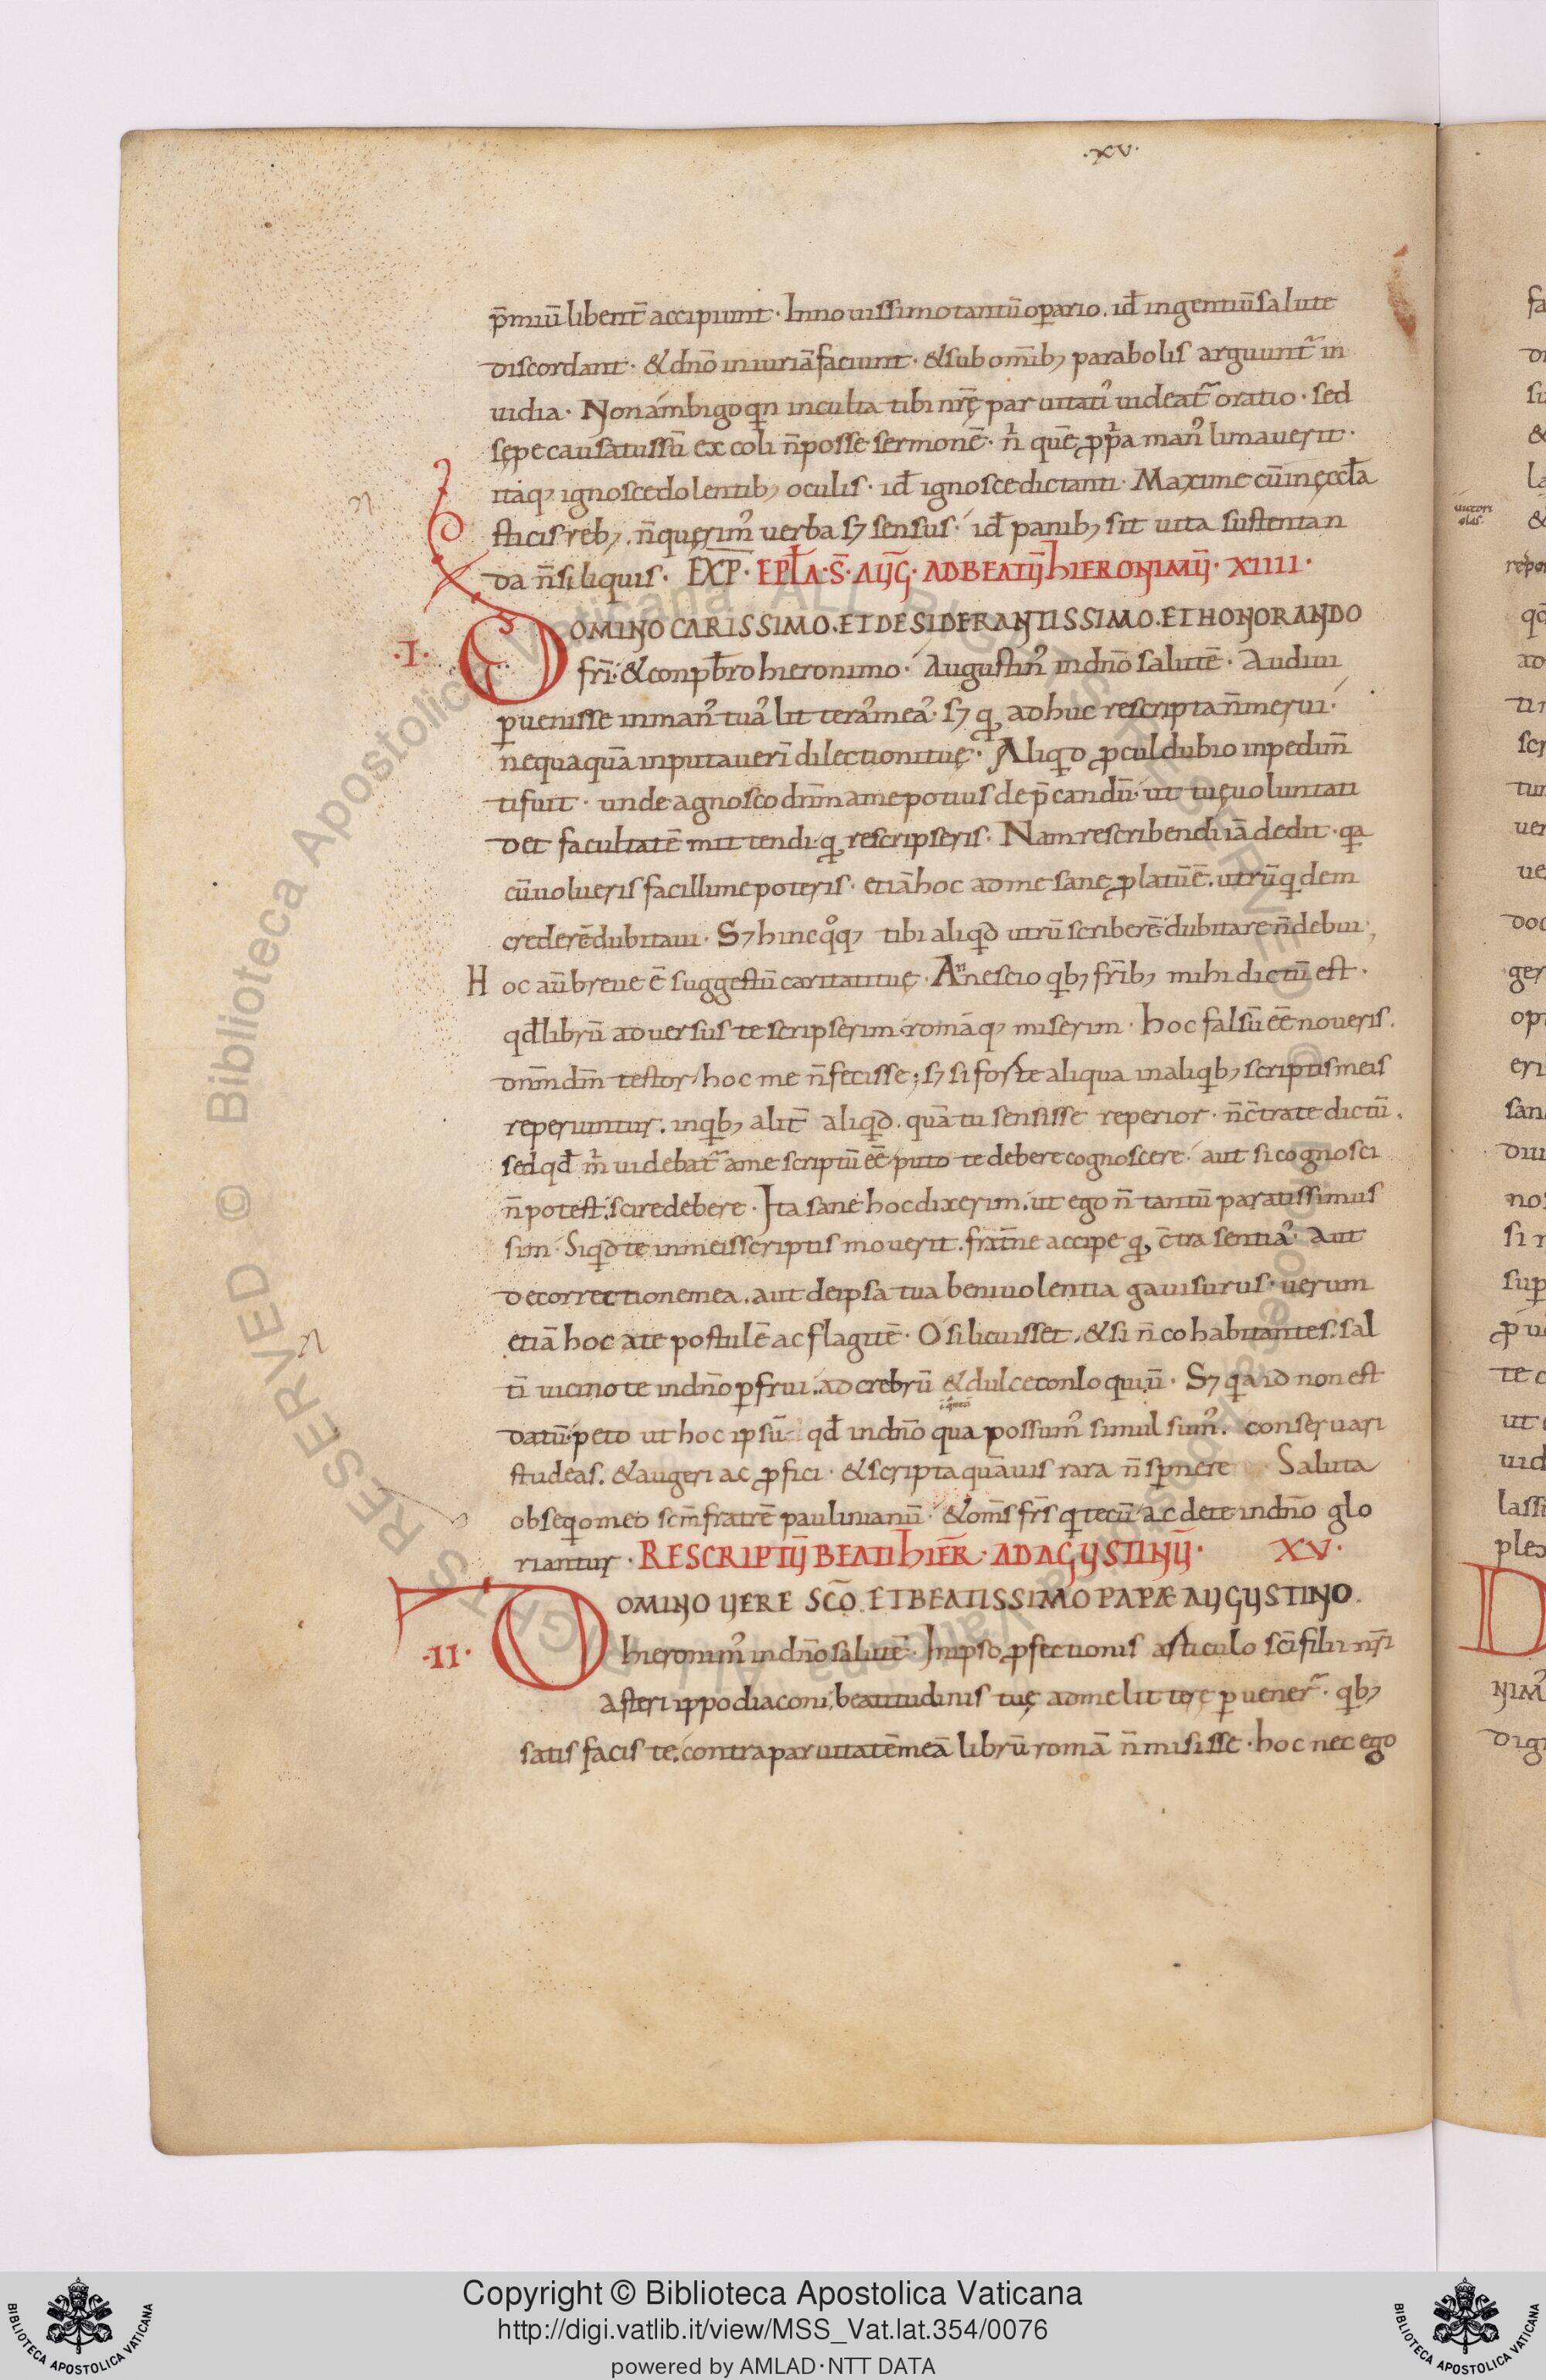 .xv.
p̄miū libent̄ accipiunt· In nouissimo tantū oꝑario. id ÷ in gentiū salute
discordant· & dn̄o iniuriā faciunt· & sub om̄ib; parabolis arguunt᷑ in
uidia· Non ambigo qn inculta tibi nr̄ę paruitatiˀ uideat᷑ oratio· sed
sępe causatus sū excoli n̄ posse sermonē· n̊ quē ꝓpa manˀ limauerit·
itaq; ignosce dolentib; oculis· id ÷ ignosce dictanti· Maxime cū in ęccła
sticis reb;. n̄ quęrimˀ uerba sꝫ sensus· id ÷ panib; sit uita sustentan
da n̄ siliquis· EXP̄· EPŁA· S̄· AUḠ· AD BEATŪ hIERONIMŪ· XIIII·
·I· DOMINO CARISSIMO. ET DESIDERANTISSIMO. ET HONORANDO
fr̄i· & conpb̄ro hieronimo· Augustinˀ in dn̄o salutē· Audiui
ꝑuenisse in manˀ tuaˀ litteraˀ meaˀ· sꝫ q adhuc rescripta n̄ merui·
nequaquā inputauerī dilectioni tuę· Aliqd ꝓcul dubio inpedim̄
ti fuit· unde agnosco dn̄m a me potius dep̄candū· ut tuę uoluntati
det facultatē mittendi q rescripseris· Nam rescribendi iā dedit· qa
cū uolueris facillime poteris· etiā hoc ad me sane ꝓlatū ē. utrū qdem
crederē dubitaui· Sꝫ hinc qͦq; tibi aliqd utrū scriberē dubitare n̄ debui;
Hoc aū breue ē suggestū caritati tuę· An nescio qb; fr̄ib; mihi dictū est·
qd librū aduersus te scripserim romāq; miserim· hoc falsū eē noueris.
dnm̄ dm̄ testor hoc me n̄ fecisse; sꝫ si forte aliqua in aliqb; scriptis meis
reperiuntur. in qb; alit̄ aliqd. quā tu sensisse reperior· n̄ c̄tra te dictū.
sed qd m̊ uidebat᷑ a me scriptū eē puto te debere cognoscere· aut si cognosci
n̄ potest; scire debere· Ita sane hoc dixerim. ut ego n̄ tantū paratissimus
sim· Siqd te in meis scriptis mouerit. frat̄ne accipe q, c̄tra sentiaˀ· Aut
de correctione mea. aut de ipsa tua beniuolentia gauisurus· uerum
etiā hoc a te postulē ac flagitē· O si licuisset. & si n̄ cohabitantes. sal
tī uicino te in dn̄o ꝑfrui. ad crebrū & dulce conloquiū· Sꝫ qa id non est
datū· peto ut hoc ipsū qd in dn̄o qua possumˀ simul simˀ. conseruari
studeas. & augeri ac ꝓfici· & scripta quāuis rara n̄ sꝑnere Saluta
obseqo meo scm̄ fratrē paulinianū· & om̄s fr̄s q tecū ac de te in dn̄o glo
riantur· RESCRIPTŪ BEATI hIER̄· AD AGUSTINŪ· XV·
·II· DOMINO UERE SC̄O. ET BEATISSIMO PAPÆ AUGUSTINO.
hieronimˀ in dn̄o salutē· In ipso ꝓfectionis articulo sc̄i filii nr̄i
asteri ippodiaconi, beatitudinis tuę ad me litterę ꝑuener᷑· qb;
satis facis te. contra paruitatē meā librū romā n̄ misisse· hoc nec ego
Copyright © Biblioteca Apostolica Vaticana
http://digi.vatlib.it/view/MSS_Vat.lat.354/0076
powered by AMLAD·NTT DATA
BIBLIOTECA APOSTOLICA VATICANA
BIBLIOTECA APOSTOLICA VATICANA